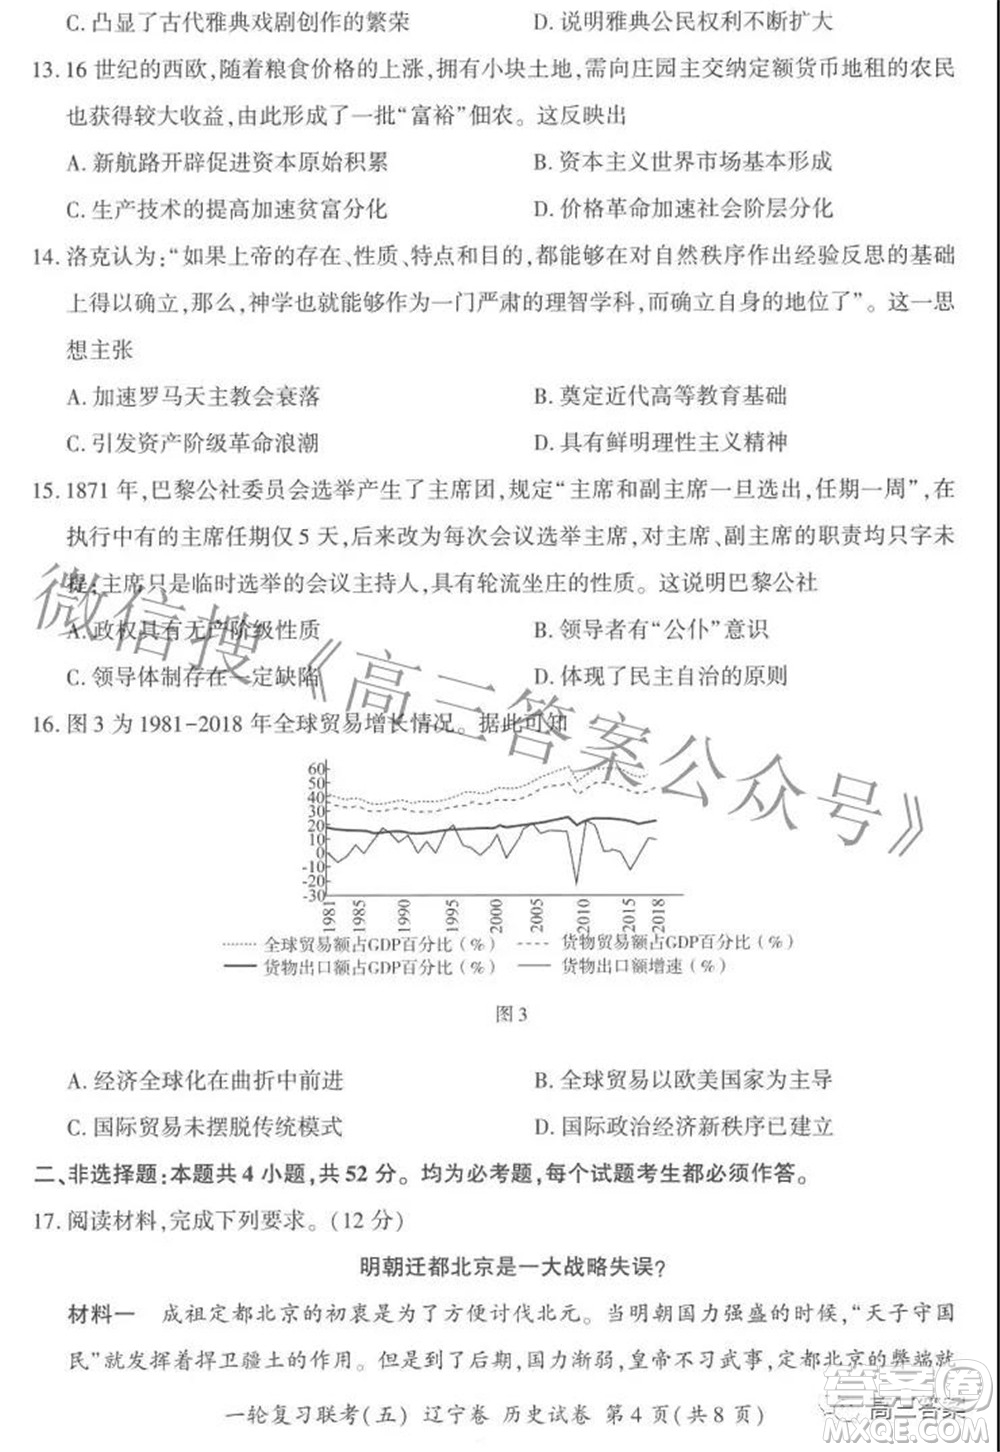 C. 凸显了古代雅典戏剧创作的繁荣 D. 说明雅典公民权利不断扩大
13. 16 世纪的西欧,随着粮食价格的上涨,拥有小块土地,需向庄园主交纳定额货币地租的农民
也获得较大收益,由此形成了一批“富裕”佃农。这反映出
A. 新航路开辟促进资本原始积累 B. 资本主义世界市场基本形成
C. 生产技术的提高加速贫富分化 D. 价格革命加速社会阶层分化
14. 洛克认为:“如果上帝的存在、性质、特点和目的,都能够在对自然秩序作出经验反思的基础
上得以确立,那么,神学也就能够作为一门严肃的理智学科,而确立自身的地位了”。这一思
想主张
A. 加速罗马天主教会衰落 B. 奠定近代高等教育基础
C. 引发资产阶级革命浪潮 D. 具有鲜明理性主义精神
15. 1871 年,巴黎公社委员会选举产生了主席团,规定“主席和副主席一旦选出,任期一周”,在
执行中有的主席任期仅 5 天,后来改为每次会议选举主席,对主席、副主席的职责均只字未
提;主席只是临时选举的会议主持人,具有轮流坐庄的性质。这说明巴黎公社
A. 政权具有无产阶级性质 B. 领导者有“公仆”意识
C. 领导体制存在一定缺陷 D. 体现了民主自治的原则
16. 图 3 为 1981-2018 年全球贸易增长情况。据此可知
60
50
40
30
20
10
0
-10
-20
-30
1981 1985 1990 1995 2000 2005 2010 2015 2018
全球贸易额占GDP百分比(%) 货物贸易额占GDP百分比(%)
货物出口额占GDP百分比(%) 货物出口额增速(%)
图 3
A. 经济全球化在曲折中前进 B. 全球贸易以欧美国家为主导
C. 国际贸易未摆脱传统模式 D. 国际政治经济新秩序已建立
二、非选择题:本题共 4 小题,共 52 分。均为必考题,每个试题考生都必须作答。
17. 阅读材料,完成下列要求。(12 分)
明朝迁都北京是一大战略失误?
材料一 成祖定都北京的初衷是为了方便讨伐北元。当明朝国力强盛的时候,“天子守国
民”就发挥着捍卫疆土的作用。但是到了后期,国力渐弱,皇帝不习武事,定都北京的弊端就
一轮复习联考(五) 辽宁卷 历史试卷 第 4 页(共 8 页)
微信搜《高三答案公众号》
高三答案